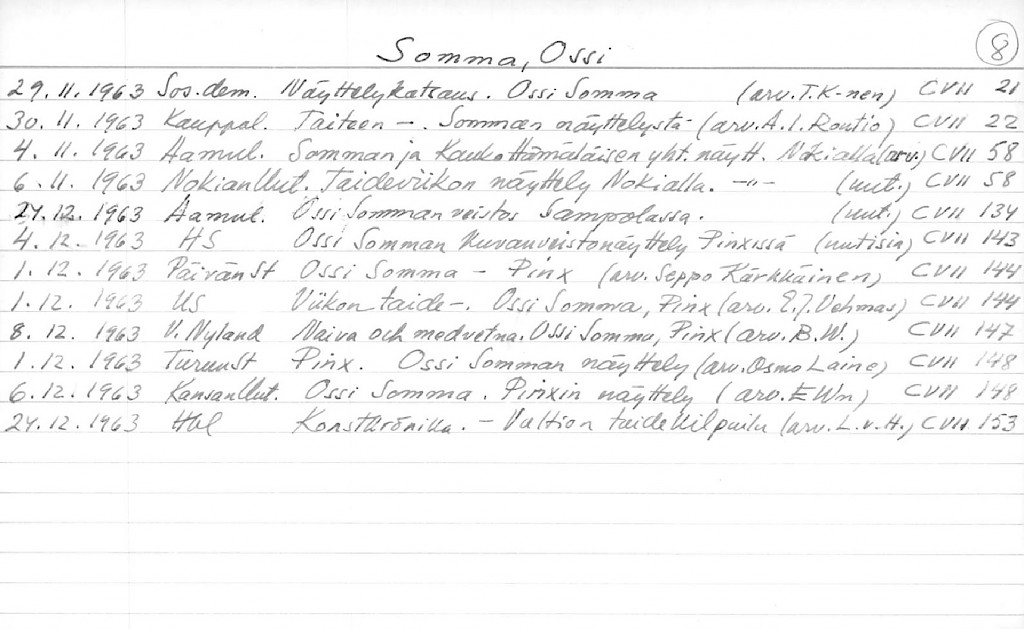 Somma, Ossi 8
29.11.1963 Sos.dem. Näyttelykatsaus. Ossi Somma (arv. T.K-nen) CVII 21
30.11.1963 Kauppal. Taiteen -. Somman näyttelystä (arv. A.I. Routio) CVII 22
4.11.1963 Aamul. Somman ja Kauko Hämäläisen yht. näytt. Nokialla (arv.) CVII 58
6.11.1963 Nokian Uut. Taideviikon näyttely Nokialla. -"- (uut.) CVII 58
24.12.1963 Aamul. Ossi Somman veistos Sampolassa. (uut.) CVII 134
4.12.1963 HS Ossi Somman kuvanveistonäyttely Pinxissä (uutisia) CVII 143
1.12.1963 PäivänSt Ossi Somma - Pinx (arv. Seppo Kärkkäinen) CVII 144
1.12.1963 US Viikon taide-. Ossi Somma, Pinx (arv. E.J. Vehmas) CVII 144
8.12.1963 V. Nyland Naiva och medvetna. Ossi Somma, Pinx (arv. B.W.) CVII 147
1.12.1963 TurunSt Pinx. Ossi Somman näyttely (arv. Osmo Laine) CVII 148
6.12.1963 Kansan Uut. Ossi Somma. Pinxin näyttely (arv. E Wn) CVII 148
24.12.1963 Hbl Konstkrönika. - Valtion taidekilpailu (arv. L.v.H.) CVII 153